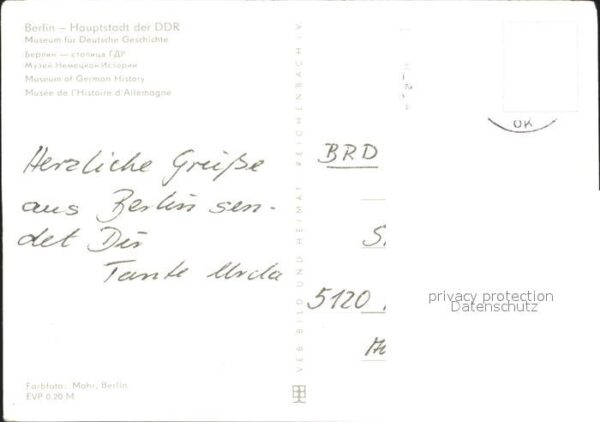 Berlin – Hauptstadt der DDR
Museum für Deutsche Geschichte
Берлин — столица ГДР
Музей Немецкой Истории
Museum of German History
Musée de l'Histoire d'Allemagne
Herzliche Grüße
aus Berlin sen-
det Dir
Tante
Farbfoto: Mahr, Berlin
EVP 0,20 M
VEB BILD UND HEIMAT REICHENBACH i. V.
OK
BRD
S
5120
privacy protection
Datenschutz